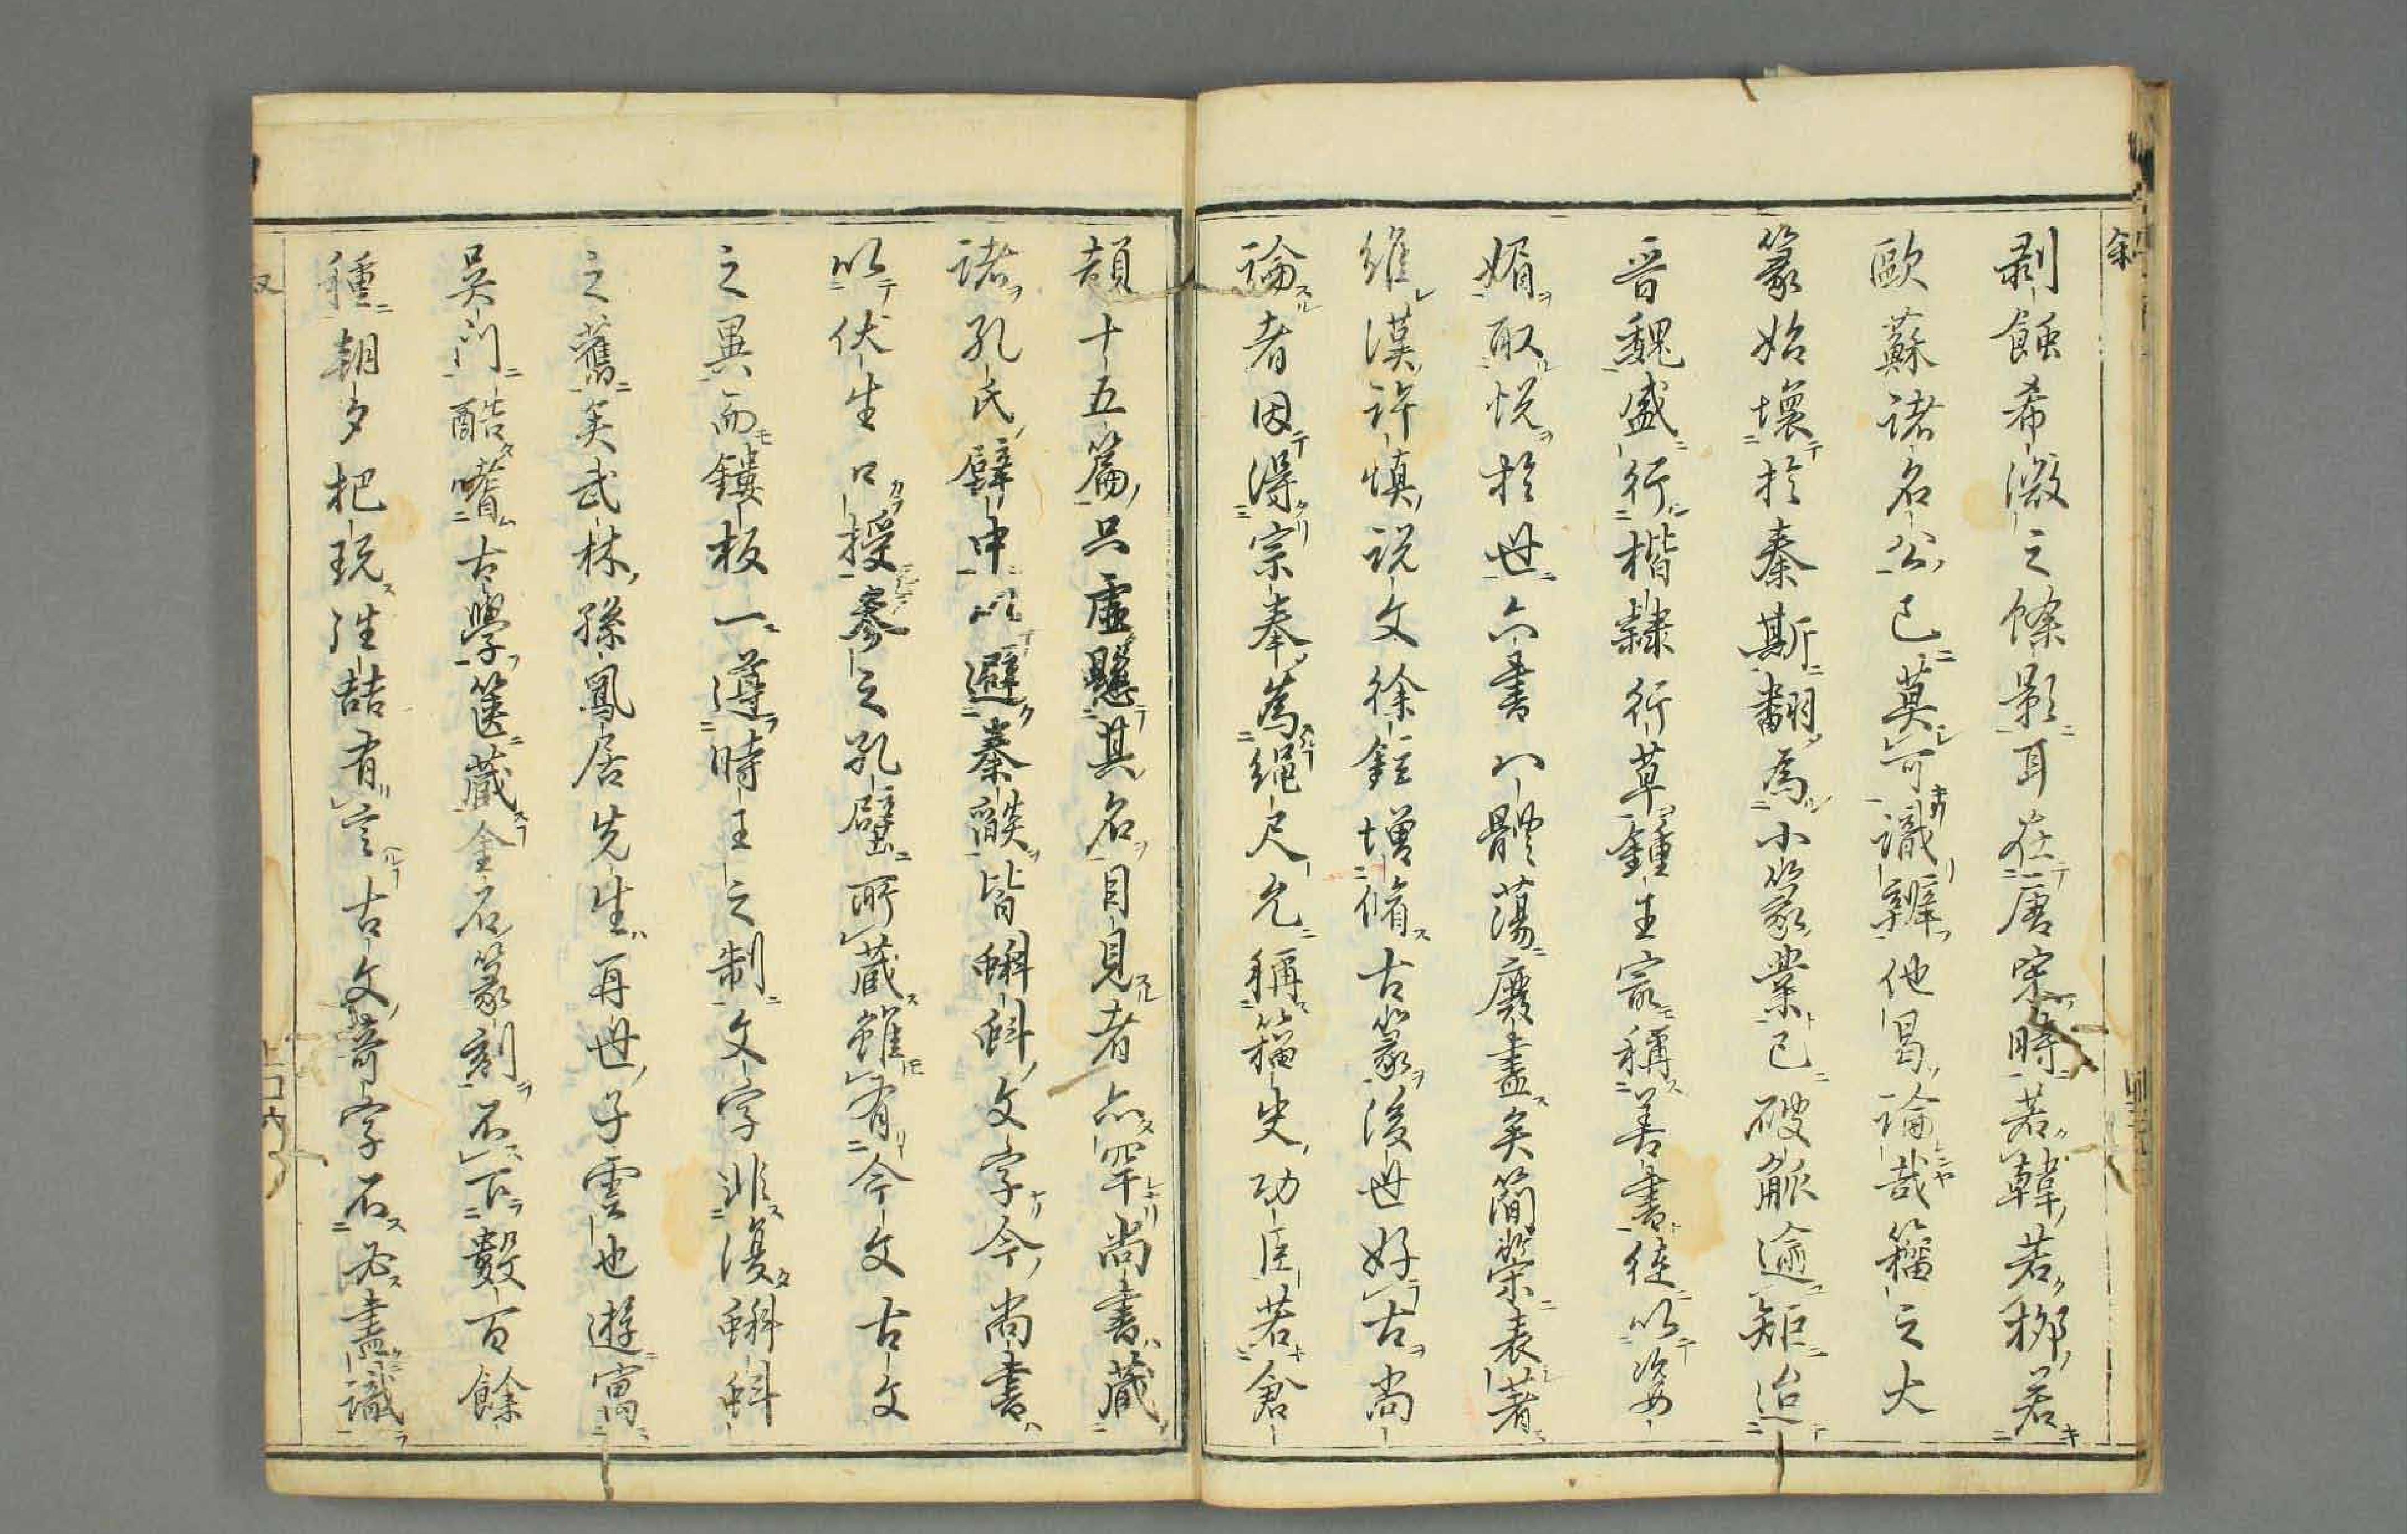 叙
剥蝕希微之條影耳在唐宋時若韓若栁若
歐蘇諸名公已莫可識辨他曷論哉籀之大
篆始壞於秦斯翻為小篆業已破觚逾矩迨
晉魏盛行楷隷行草鍾王最稱善書徒以姿
媚取悦於世六書八體蕩廢盡矣簡榮表著
維漢許慎説文徐鉉增脩古篆後世好古尚
論者因得宗奉為繩尺允稱籀史功臣若倉
頡十五篇只虚懸其名目見者亦罕尚書藏
諸孔氏壁中以避秦燄皆蝌蚪文字今尚書
以伏生口授參之孔壁所藏雖有今文古文
之異而鏤板一遵時王之制文字非復蝌蚪
之舊矣武林孫鳳居先生再世子雲也遊寓
吳門酷嗜古學篋藏金石篆刻不下數百餘
種朝夕把玩詰有言古文竒字不必盡識